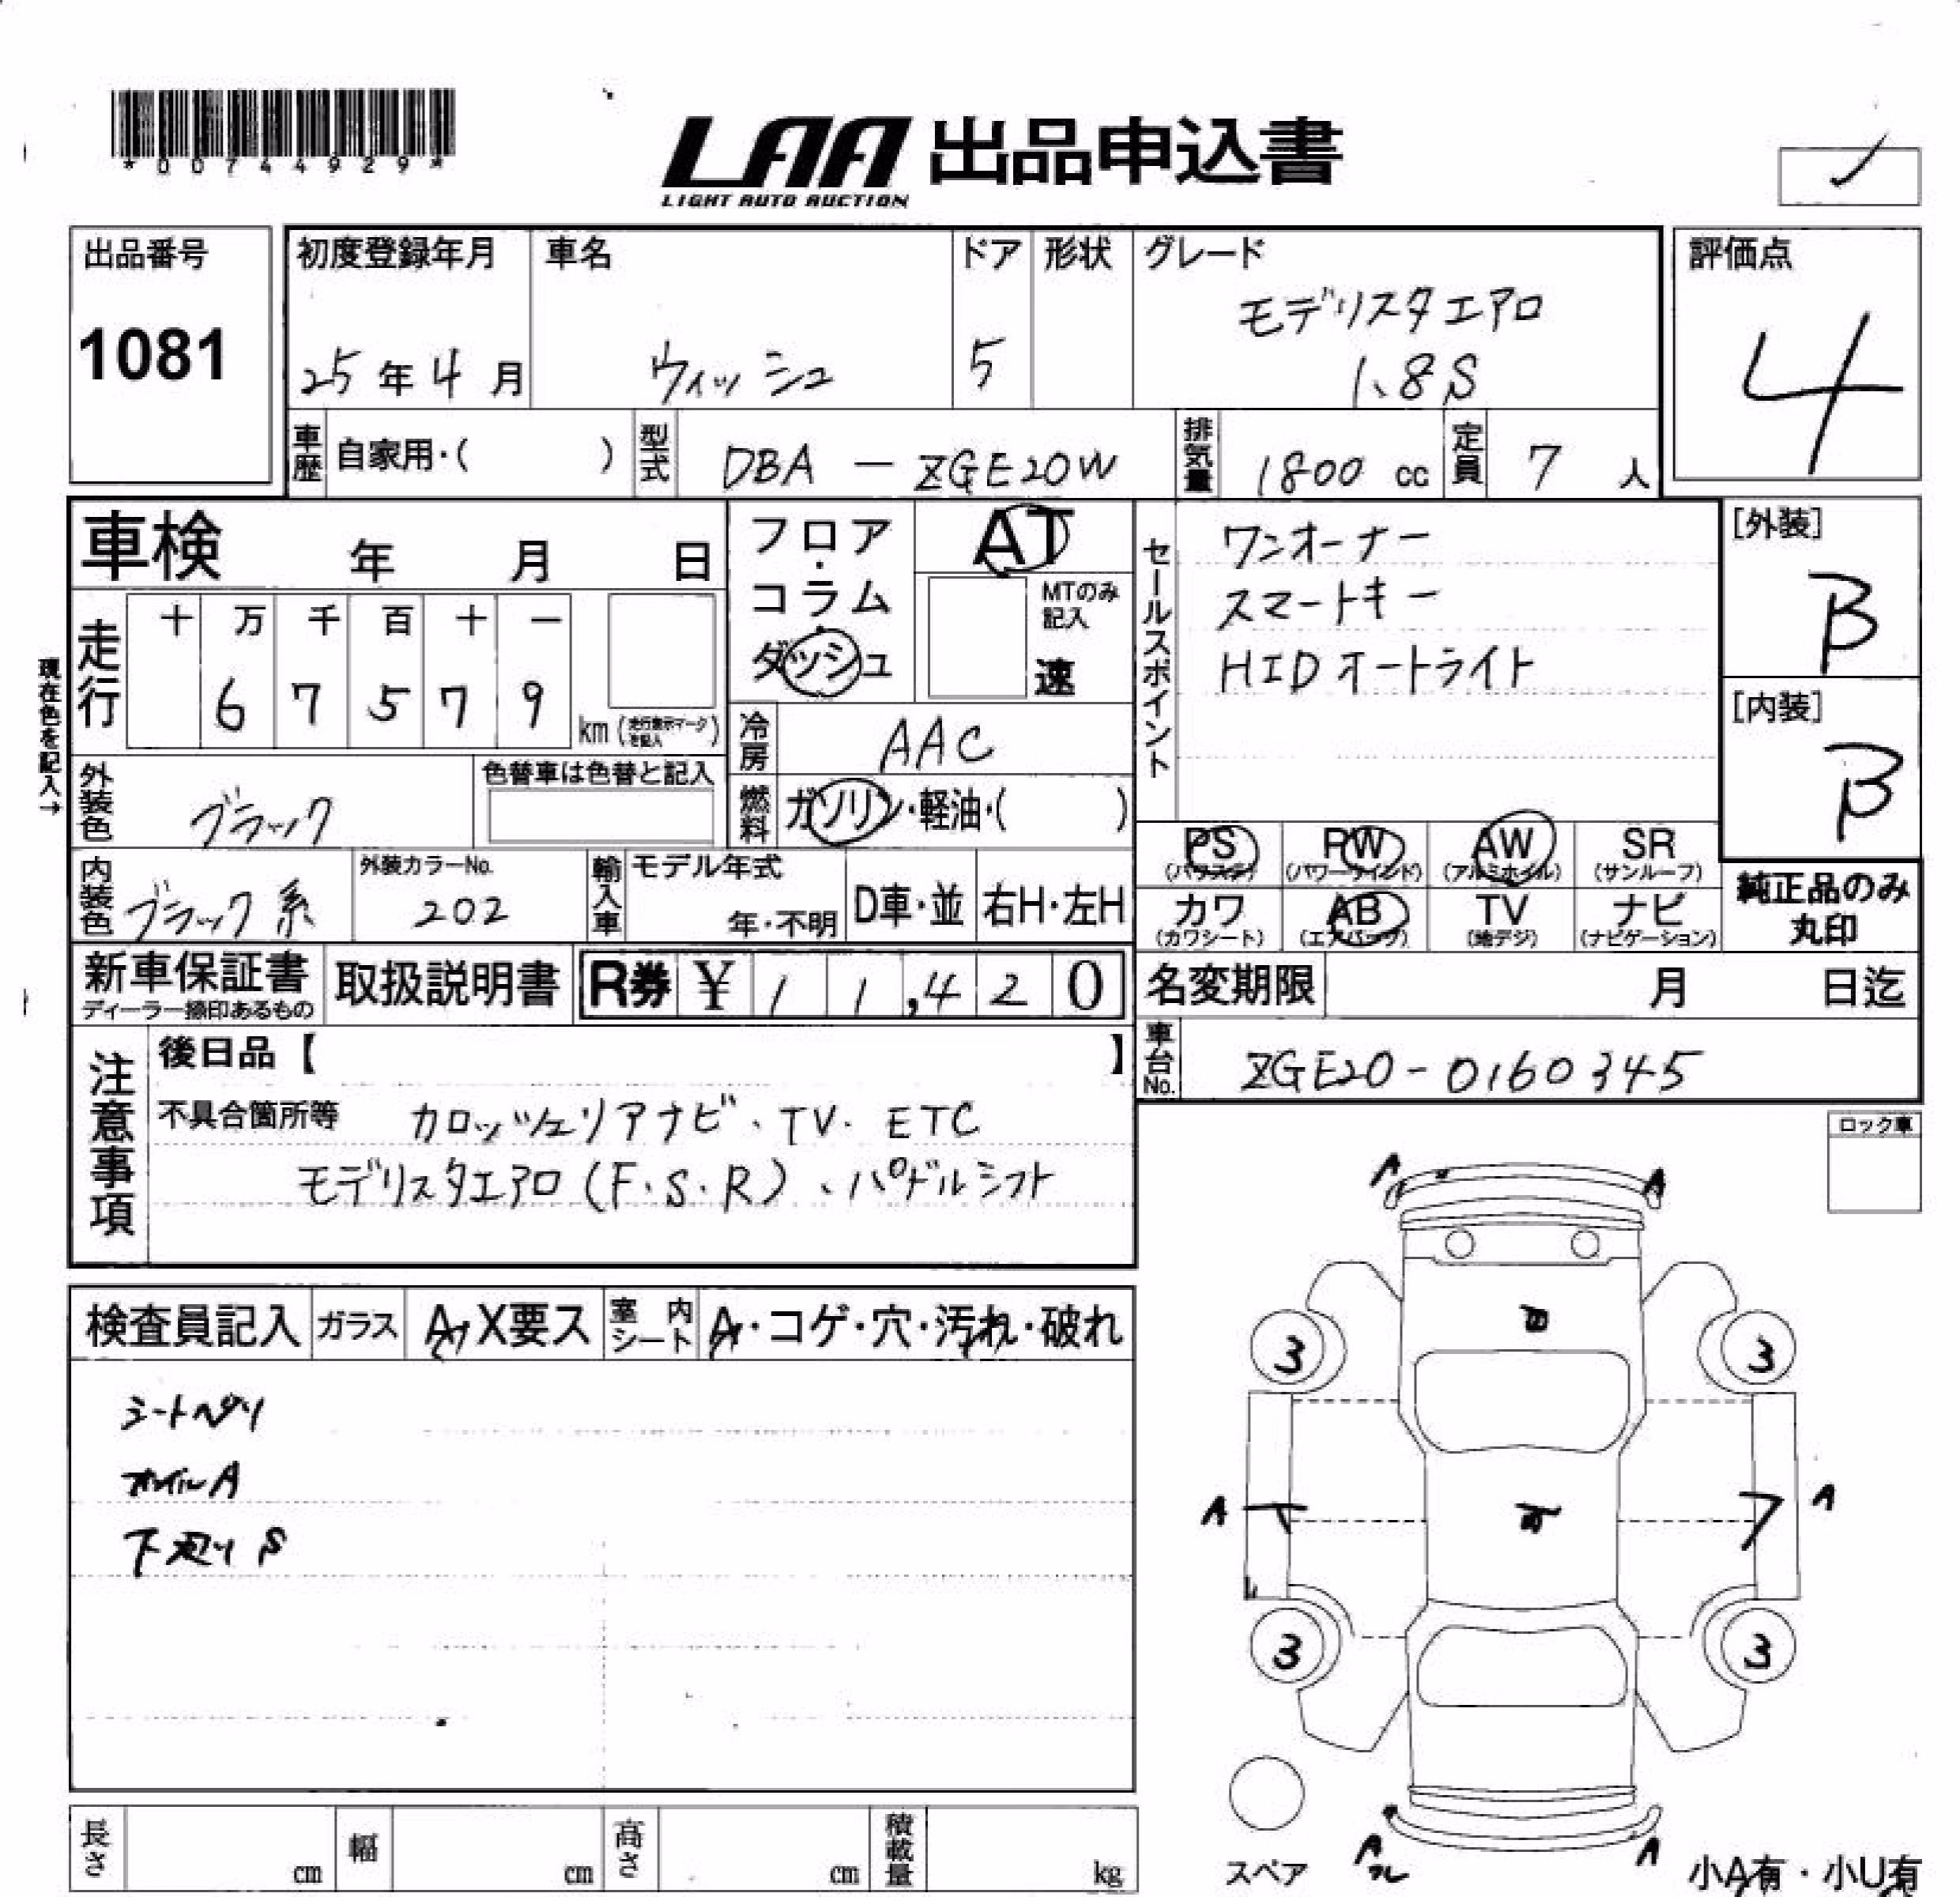 *00744929*
LAA 出品申込書
LIGHT AUTO AUCTION
出品番号
1081
初度登録年月
25年4月
車名
ウィッシュ
ドア
5
形状
グレード
モデリスタエアロ
1.8S
評価点
4
車歴 自家用・( )
型式 DBA - ZGE20W
排気量 1800 cc
定員 7人
車検 年 月 日
フロア・コラム・ダッシュ
AT
MTのみ記入
速
セールスポイント
ワンオーナー
スマートキー
HIDオートライト
[外装]
B
[内装]
B
現在色を記入→
走行
十 万 千 百 十 一
6 7 5 7 9
km (走行表示マークを記入)
冷房 AAC
燃料 ガソリン・軽油・( )
外装色 ブラック
色替車は色替と記入
内装色 ブラック系
外装カラーNo.
202
輸入車
モデル年式
年・不明
D車・並
右H・左H
PS (パワステ)
PW (パワーウインド)
AW (アルミホイル)
SR (サンルーフ)
カワ (カワシート)
AB (エアバッグ)
TV (地デジ)
ナビ (ナビゲーション)
純正品のみ
丸印
新車保証書
ディーラー捺印あるもの
取扱説明書
R券 ¥ 1 1,4 2 0
名変期限 月 日迄
車台No. ZGE20-0160345
注意事項
後日品【 】
不具合箇所等 カロッツェリアナビ、TV、ETC
モデリスタエアロ(F.S.R)、パドルシフト
ロック車
検査員記入
ガラス A,X要ス
室内シート A・コゲ・穴・汚れ・破れ
シートヘタリ
ホイルA
下廻りS
A A
3 3
A A
3 3
A A
スペア
小A有・小U有
長さ cm
幅 cm
高さ cm
積載量 kg